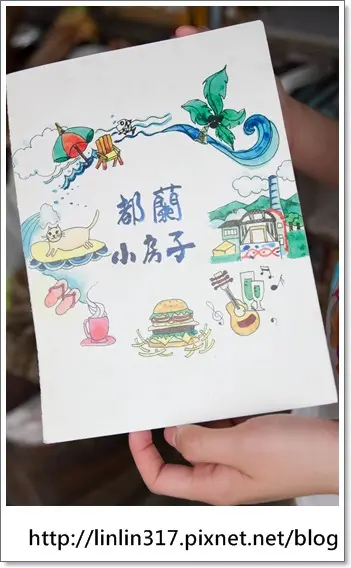 都蘭
小房子
http://linlin317.pixnet.net/blog